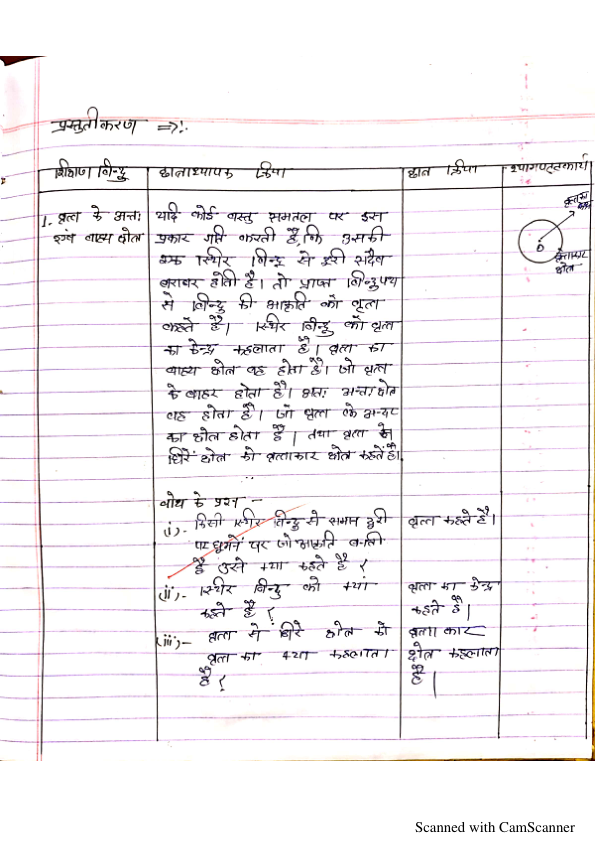 प्रस्तुतीकरण ⇒:-
शिक्षण बिन्दु छात्राध्यापक क्रिया छात्र क्रिया श्यामपट्टकार्य
1. वृत्त के अन्तः
एवं बाह्य क्षेत्र
यदि कोई वस्तु समतल पर इस
प्रकार गति करती है, कि उसकी
एक स्थिर बिन्दु से दूरी सदैव
बराबर होती है। तो प्राप्त बिन्दुपथ
से बिन्दु की आकृति को वृत्त
कहते हैं। स्थिर बिन्दु को वृत्त
का केन्द्र कहलाता है। वृत्त का
बाह्य क्षेत्र वह होता है। जो वृत्त
के बाहर होता है। अतः अन्तः क्षेत्र
वह होता है। जो वृत्त के अन्दर
का क्षेत्र होता है। तथा वृत्त से
घिरे क्षेत्र को वृत्ताकार क्षेत्र कहते हैं।
बोध के प्रश्न –
(i) ;- किसी स्थिर बिन्दु से समान दूरी
पर घूमने पर जो आकृति बनती
है उसे क्या कहते है ?
(ii) ;- स्थिर बिन्दु को क्या
कहते है ?
(iii) ;- वृत्त से घिरे क्षेत्र को
वृत्त का क्या कहलाता
है ?
वृत्त कहते है।
वृत्त का केन्द्र
कहते है।
वृत्ता कार
क्षेत्र कहलाता
है।
o
वृत्ताकार
क्षेत्र
Scanned with CamScanner